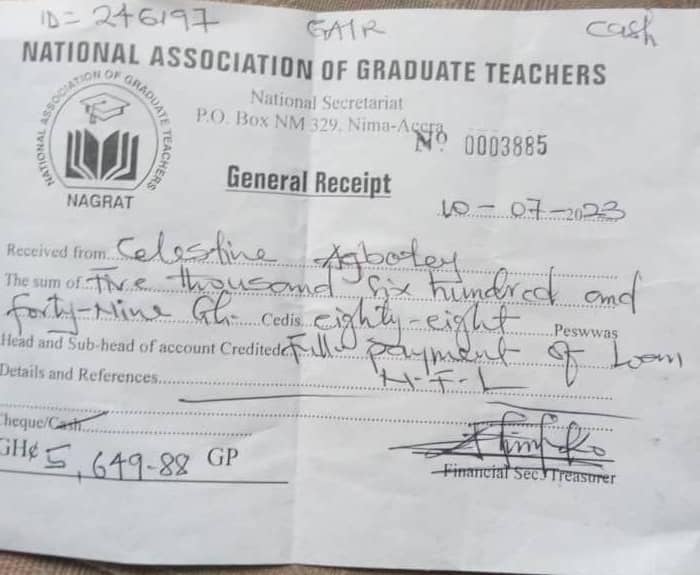 ID= 246197 GAIR Cash
NATIONAL ASSOCIATION OF GRADUATE TEACHERS
NATIONAL ASSOCIATION OF GRADUATE TEACHERS
NAGRAT
National Secretariat
P.O. Box NM 329, Nima-Accra
Nº 0003885
General Receipt
10-07-2023
Received from Celestine Agbotey
The sum of Five thousand six hundred and
forty-Nine Gh. Cedis eighty-eight Peswwas
Head and Sub-head of account Credited Full payment of Loan
Details and References N-F-L
Cheque/Cash
GH¢ 5,649-88 GP
Financial Sec./Treasurer